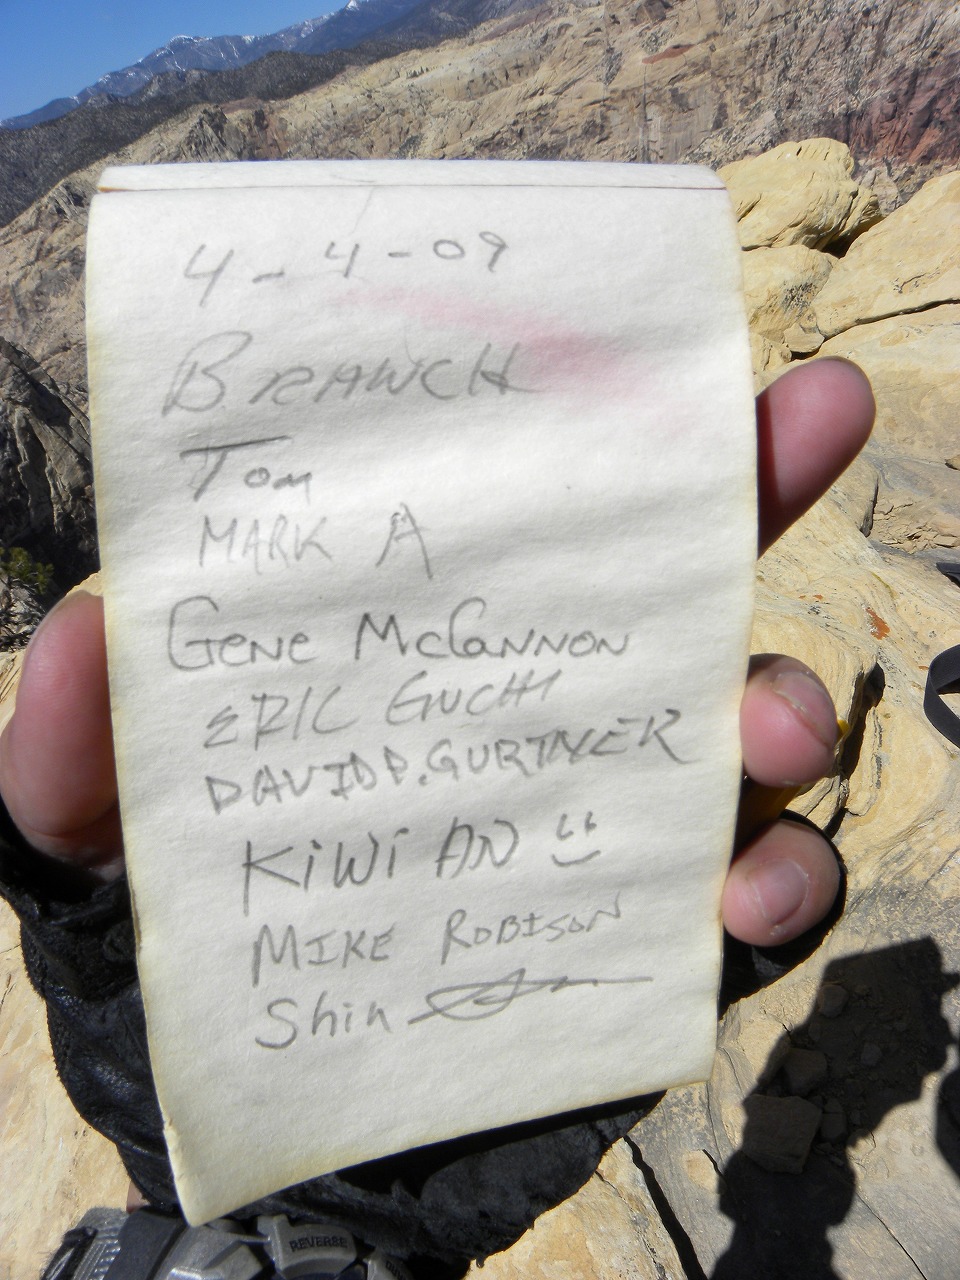 4-4-09
BRAWCH
Tom
MARK A
Gene McGannon
ERIC GUCHI
DAVID P. GURTNER
KiWi AN
MIKE ROBISON
Shin
REVERSE